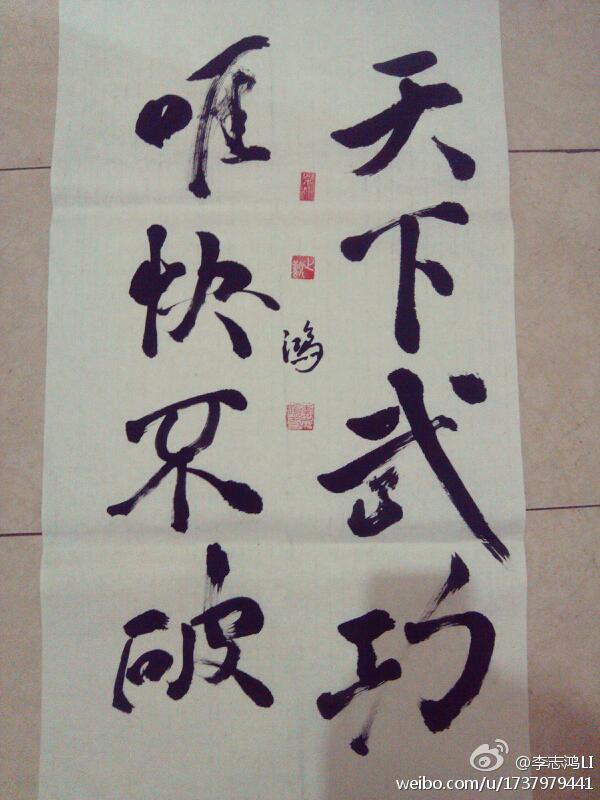 天下武功
唯快不破
鸿
@李志鸿LI
weibo.com/u/1737979441